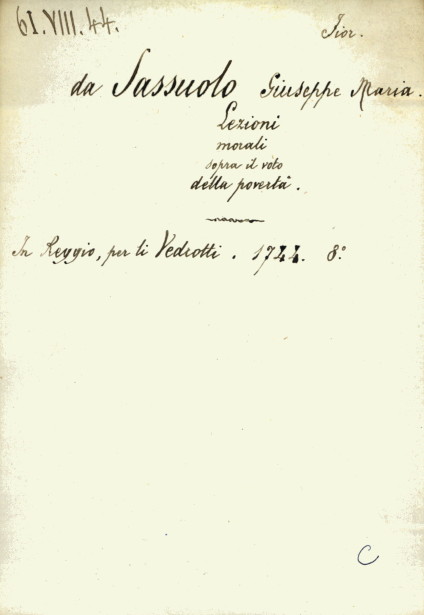 61.VIII.44.
Fior.
da Sassuolo Giuseppe Maria.
Lezioni
morali
sopra il voto
della povertà.
In Reggio, per li Vedrotti. 1744. 8°
C